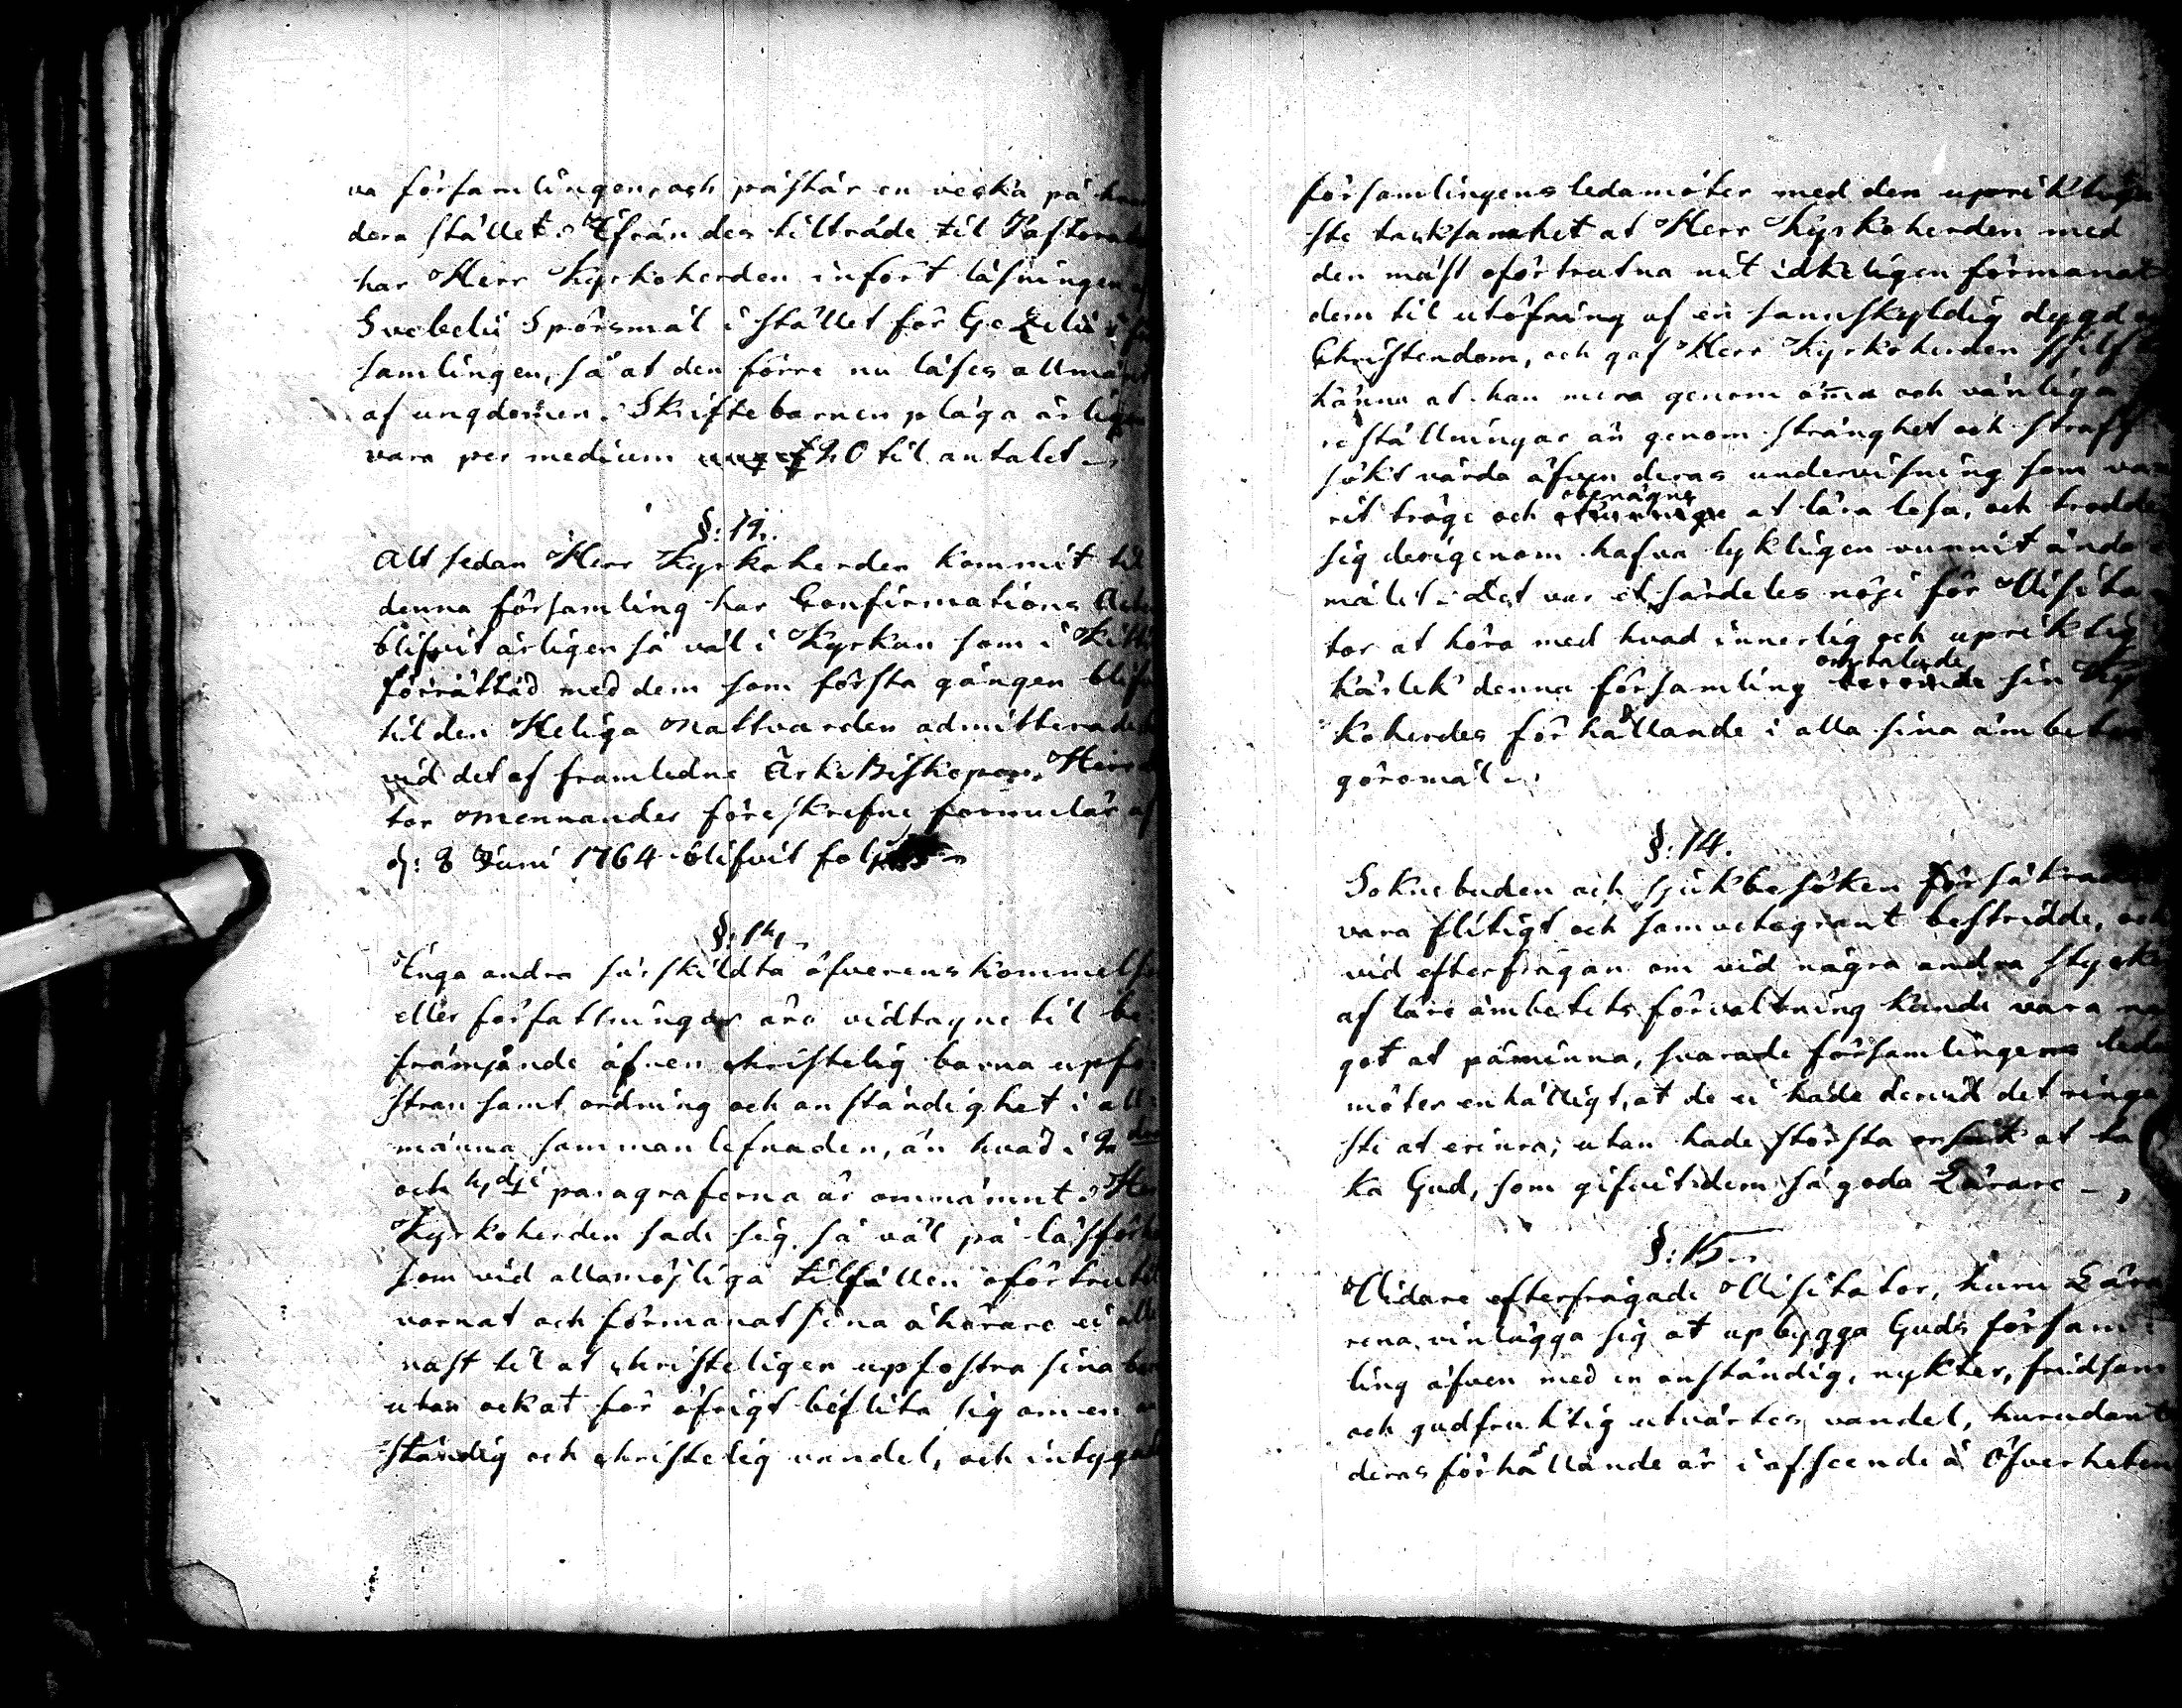 va församlingen, och påstår en vecka på
dera stället. Ifrån des tilträde til Pastora
har Herr Kyrkoherden infört läsningen
Svebelii Spörsmål i stället för Gezelii i
samlingen, så at den förre nu läses allmän
af ungdomen. Skriftebarnen pläga årligen
vara per medium 20 til antalet
§: 12.
Alt sedan Herr Kyrkoherden kommit til
denna församling har Confirmations Acten
blifvit årligen så väl i Kyrkan som i
förrättad med dem som första gången blifv
til den Heliga Nattvarden admitterade
vid det af framledne Ärke Biskopen Herr
tor Mennander föreskrefne formulär af
d: 8 Juni 1764 blifvit följdt
§: 13.
Inga andra särskildta öfverenskommelse
eller författningar äro vidtagne til be-
främjande äfven christelig barna upfo-
stran samt ordning och anständighet i all-
männa sammanlefnaden, än hvad i 2
och 3dje paragraferna är ommämnt. Herr
Kyrkoherden sade sig så väl på läsför
som vid alla möjliga tilfällen oförtrutit
varnat och förmanat sina åhörare ei alle
nast til at christeligen upfostra sina barn
utan ock at för öfrigt beflita sig om en an
ständig och christelig vandel, och intygade
församlingens ledamöter med den upriktiga
ste tacksamhet at Herr Kyrkoherden med
den mäst oförtrutna nit idkeligen förmanat
dem til utöfning af en sannskyldig dygd
Christendom, och gaf Herr Kyrkoherden sjelf
känna at han mera genom öma och vänliga
reställningar än genom stränghet och straff
sökt vårda äfven deras undervisning som va
rit tröge och obenägne at lära läsa, och trodde
sig derigenom hafva lykligen vunnit ända
målet. Det var et särdeles nöje för Visita
tor at höra med hvad innerlig och upriktig
kärlek denna församling omtalade sin Kyr
koherdes förhållande i alla sina ämbets
göromål.
§: 14.
Soknebuden och sjukbesöken försäkrades
vara flitigt och samvetsgrant bestridde, och
vid efterfrågan om vid några andra stycken
af läro ämbetets förvaltning kunde vara nå
got at påminna, svarade församlingens leda
möter enhälligt, at de ei hade dervid det ringa
ste at erinra; utan hade största orsak at ta
ka Gud, som gifvit dem så goda Lärare
§: 15.
Vidare efterfrågade Visitator, huru Lära
rena vinlägga sig at upbygga Guds försam-
ling äfven med en anständig, nykter, fridsam
och gudfruktig utvärtes vandel, hurudant
deras förhållande är i afseende å Öfverheten